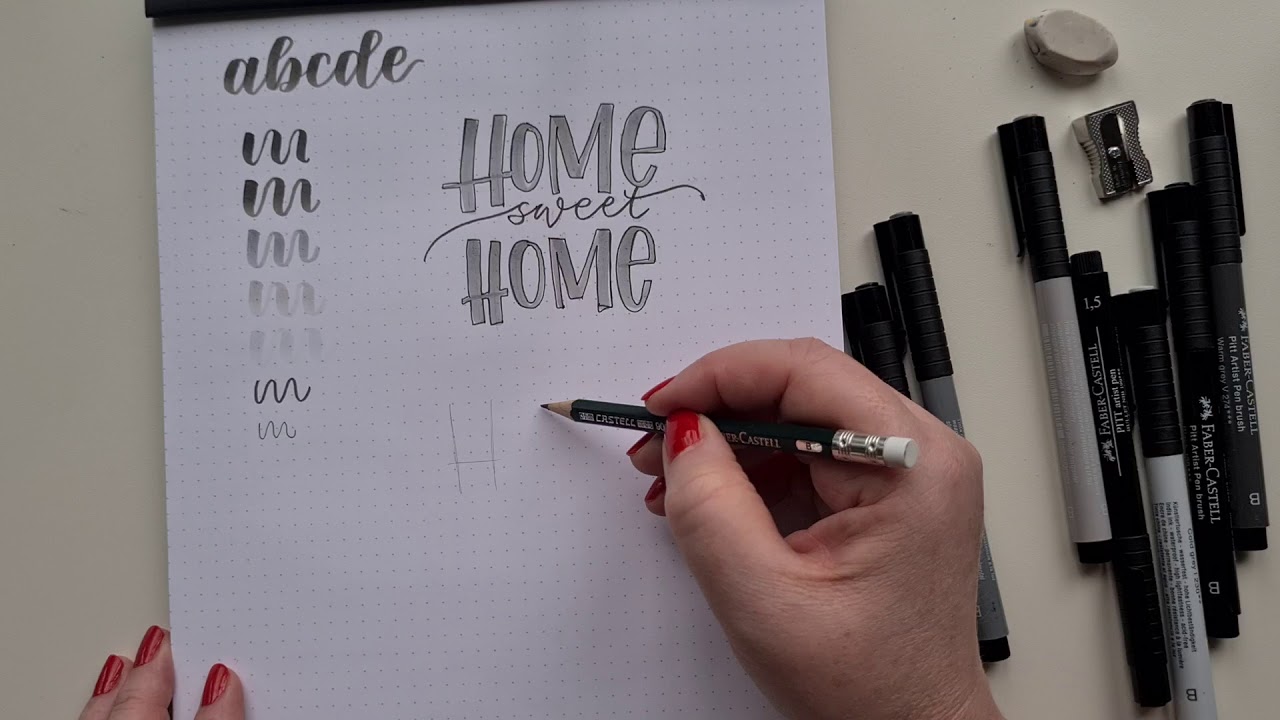 abcde
m
m
m
m
m
m
m
HOME
sweet
HOME
H
CASTELL
FABER-CASTELL
B
1,5
FABER-CASTELL
PITT artist pen
FABER-CASTELL
Pitt Artist Pen brush
B
FABER-CASTELL
Pitt Artist Pen brush
Warm grey V 274***
B
B